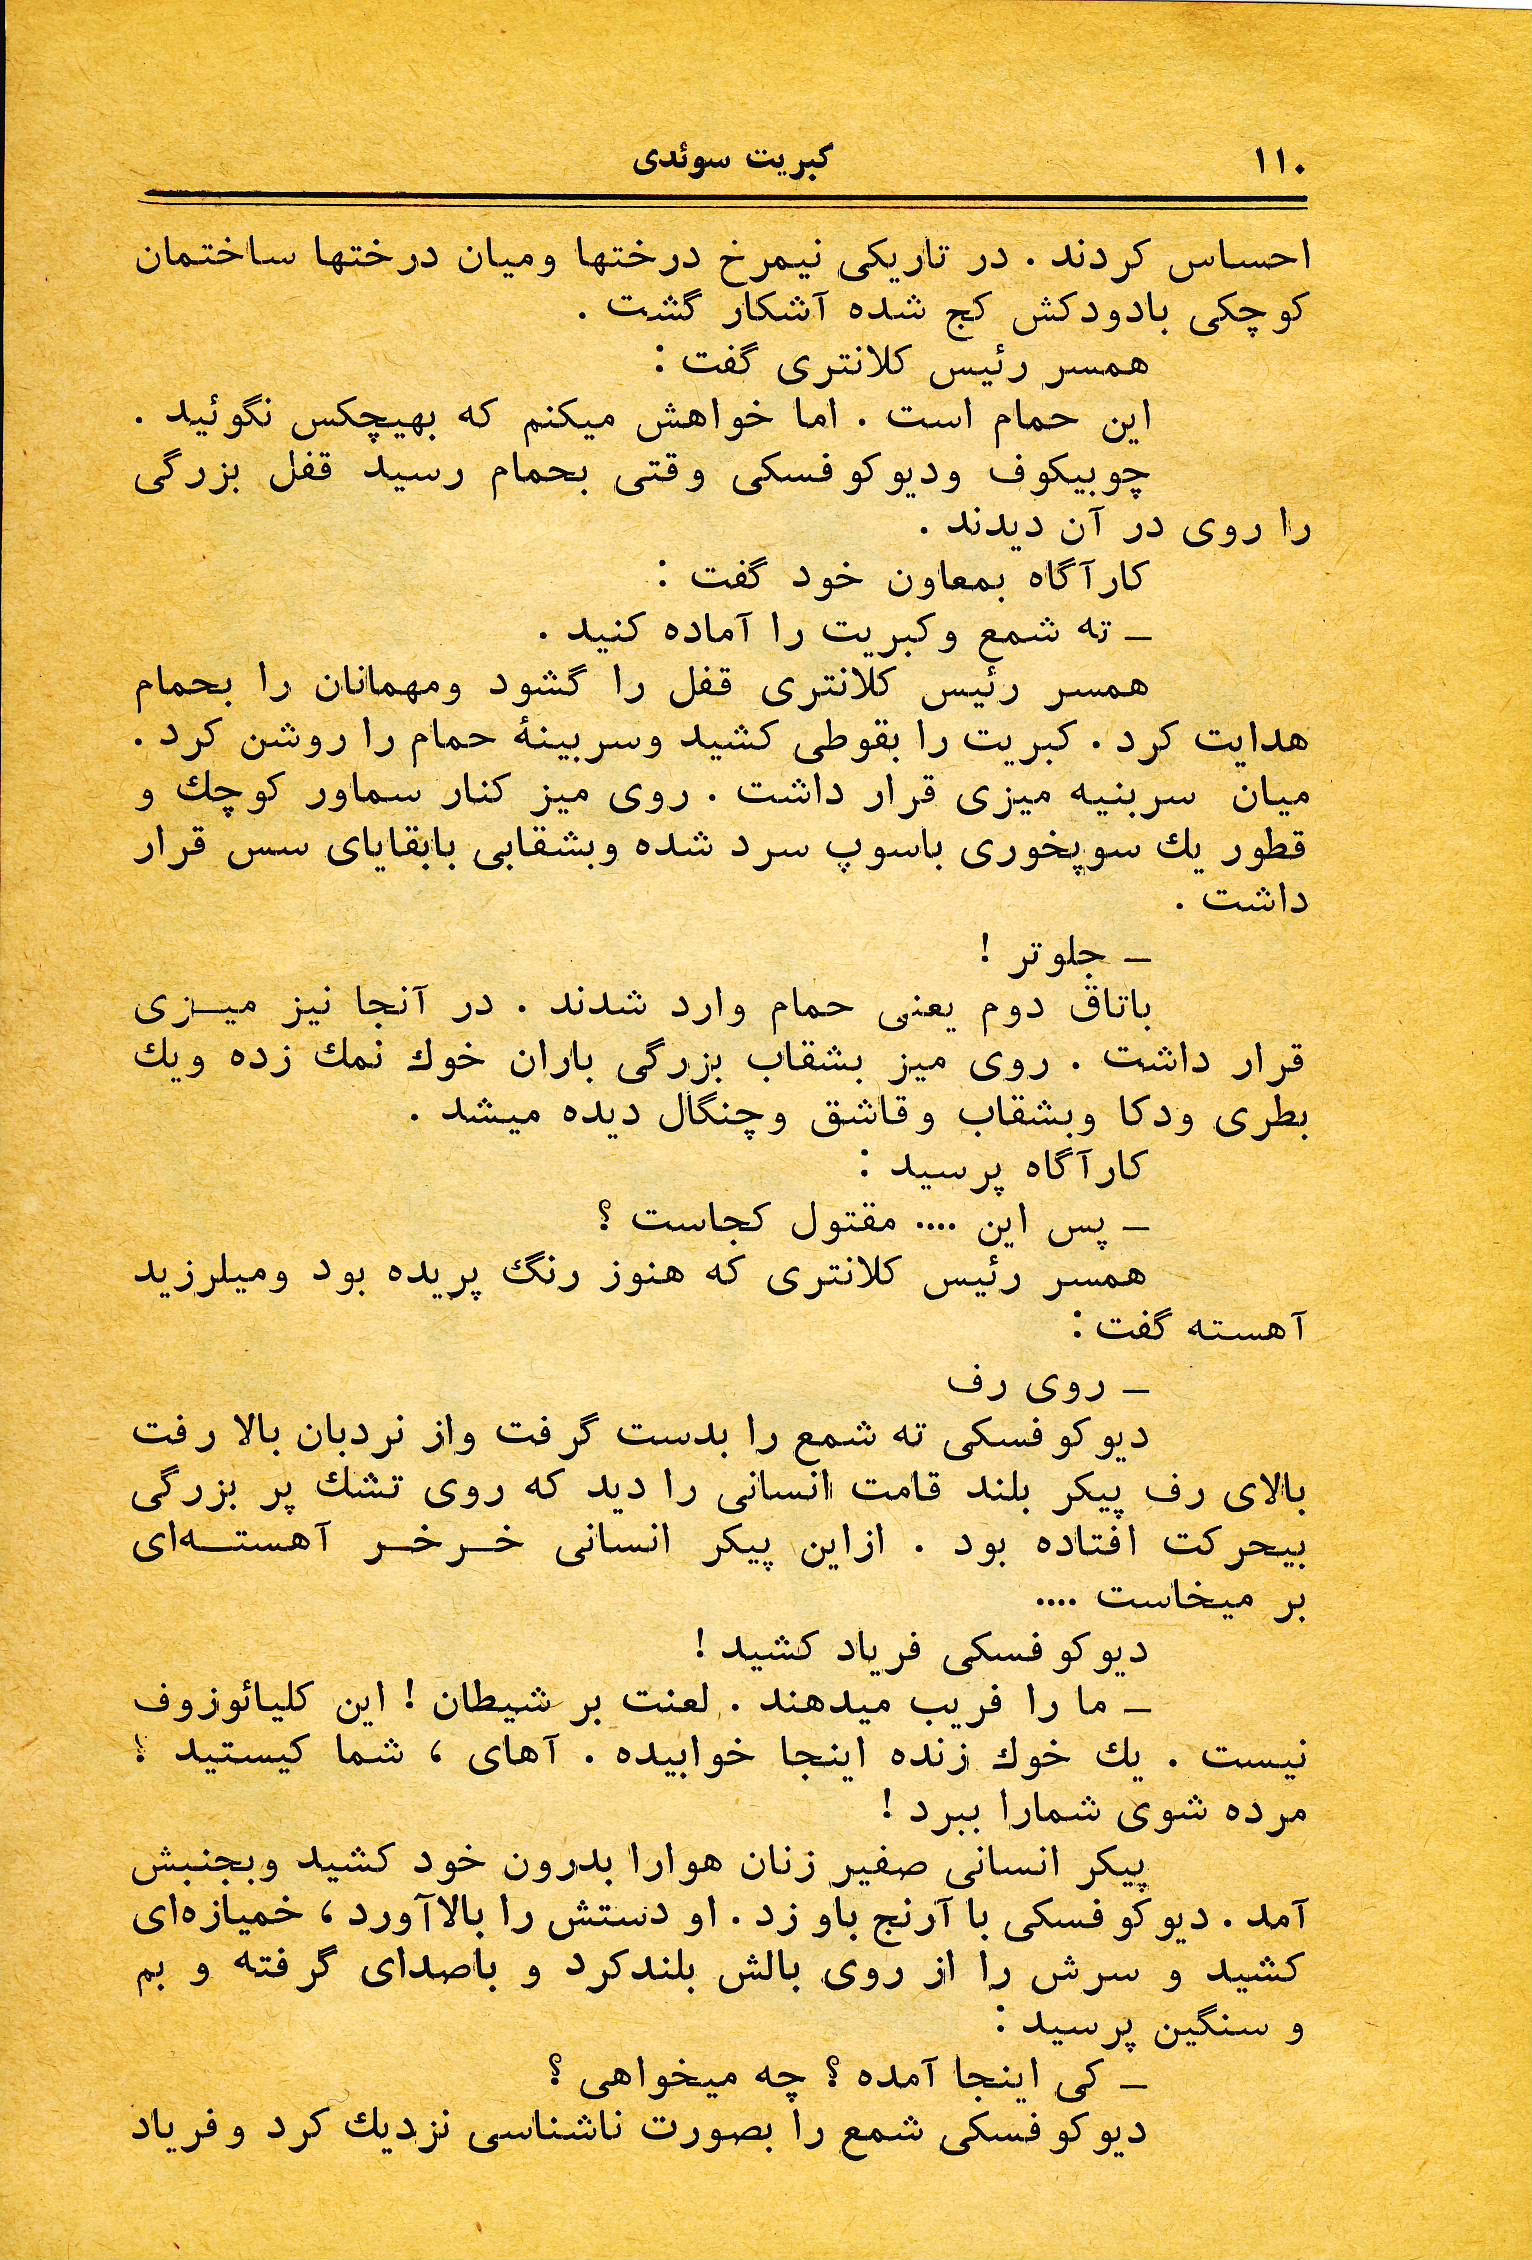 ۱۱۰
کبریت سوئدی
احساس کردند . در تاریکی نیمرخ درختها ومیان درختها ساختمان
کوچکی بادودکش کج شده آشکار گشت .
همسر رئیس کلانتری گفت :
این حمام است . اما خواهش میکنم که بهیچکس نگوئید .
چوبیکوف ودیوکوفسکی وقتی بحمام رسید قفل بزرگی
را روی در آن دیدند .
کارآگاه بمعاون خود گفت :
ـ ته شمع وکبریت را آماده کنید .
همسر رئیس کلانتری قفل را گشود ومهمانان را بحمام
هدایت کرد . کبریت را بقوطی کشید وسربینهٔ حمام را روشن کرد .
میان سربنیه میزی قرار داشت . روی میز کنار سماور کوچك و
قطور یك سوپخوری باسوپ سرد شده وبشقابی بابقایای سس قرار
داشت .
ـ جلوتر !
باتاق دوم یعنی حمام وارد شدند . در آنجا نیز میـزی
قرار داشت . روی میز بشقاب بزرگی باران خوك نمك زده ویك
بطری ودکا وبشقاب وقاشق وچنگال دیده میشد .
کارآگاه پرسید :
ـ پس این .... مقتول کجاست ؟
همسر رئیس کلانتری که هنوز رنگ پریده بود ومیلرزید
آهسته گفت :
ـ روی رف
دیوکوفسکی ته شمع را بدست گرفت واز نردبان بالا رفت
بالای رف پیکر بلند قامت انسانی را دید که روی تشك پر بزرگی
بیحرکت افتاده بود . ازاین پیکر انسانی خـرخـر آهستـه‌ای
بر میخاست ....
دیوکوفسکی فریاد کشید !
ـ ما را فریب میدهند . لعنت بر شیطان ! این کلیائوزوف
نیست . یك خوك زنده اینجا خوابیده . آهای ، شما کیستید ؟
مرده شوی شمارا ببرد !
پیکر انسانی صفیر زنان هوارا بدرون خود کشید وبجنبش
آمد . دیوکوفسکی با آرنج باو زد . او دستش را بالاآورد ، خمیازه‌ای
کشید و سرش را از روی بالش بلندکرد و باصدای گرفته و بم
و سنگین پرسید :
ـ کی اینجا آمده ؟ چه میخواهی ؟
دیوکوفسکی شمع را بصورت ناشناسی نزدیك کرد وفریاد